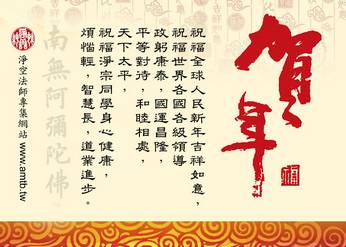 賀年
祝福全球人民新年吉祥如意，
祝福世界各國各級領導
政躬康泰，國運昌隆，
平等對待，和睦相處，
天下太平，
祝福淨宗同學身心健康，
煩惱輕，智慧長，道業進步。
南無阿彌陀佛
淨空法師專集網站 www.amtb.tw